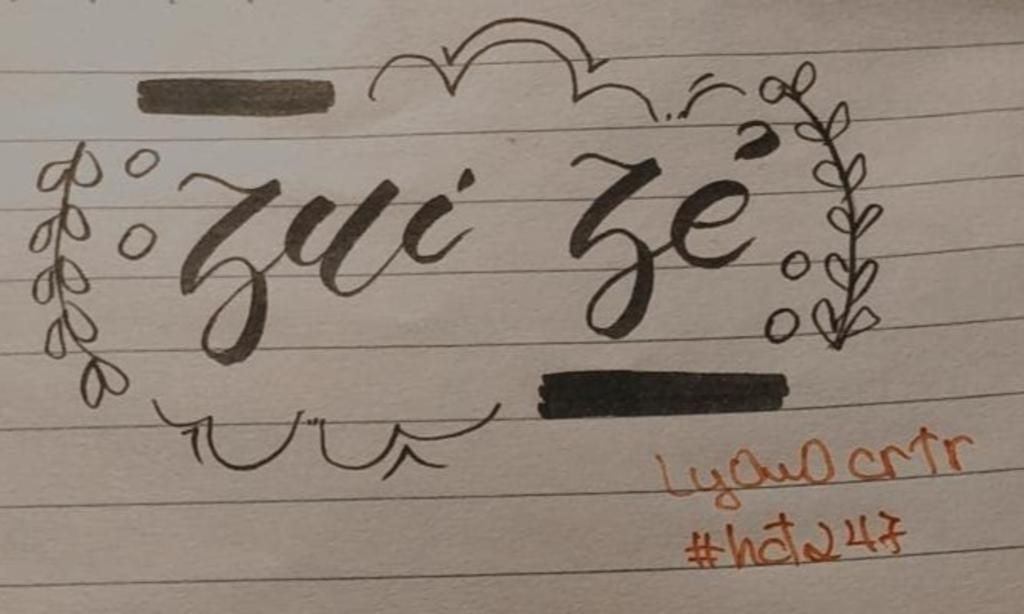 zui zẻ
LyOuOcrtr
#hat247